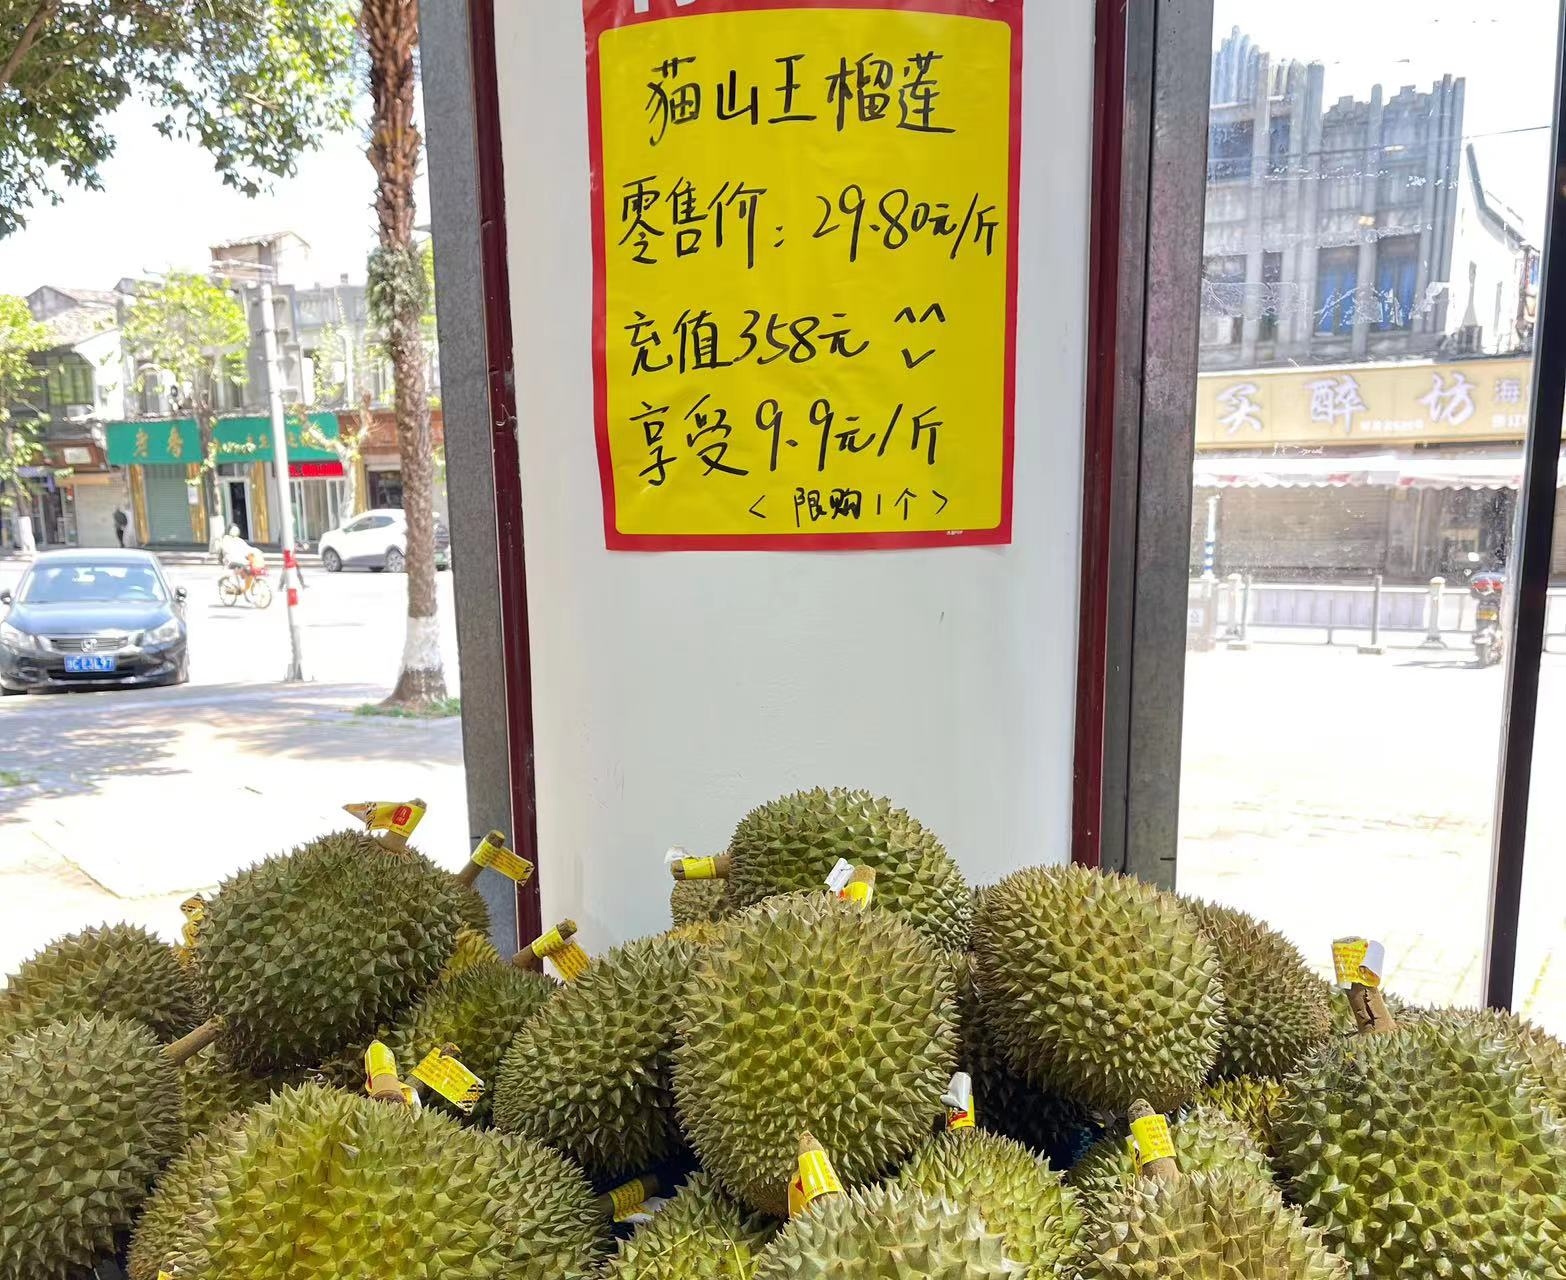 猫山王榴莲
零售价：29.80元/斤
充值358元
享受9.9元/斤
<限购1个>
买醉坊
海